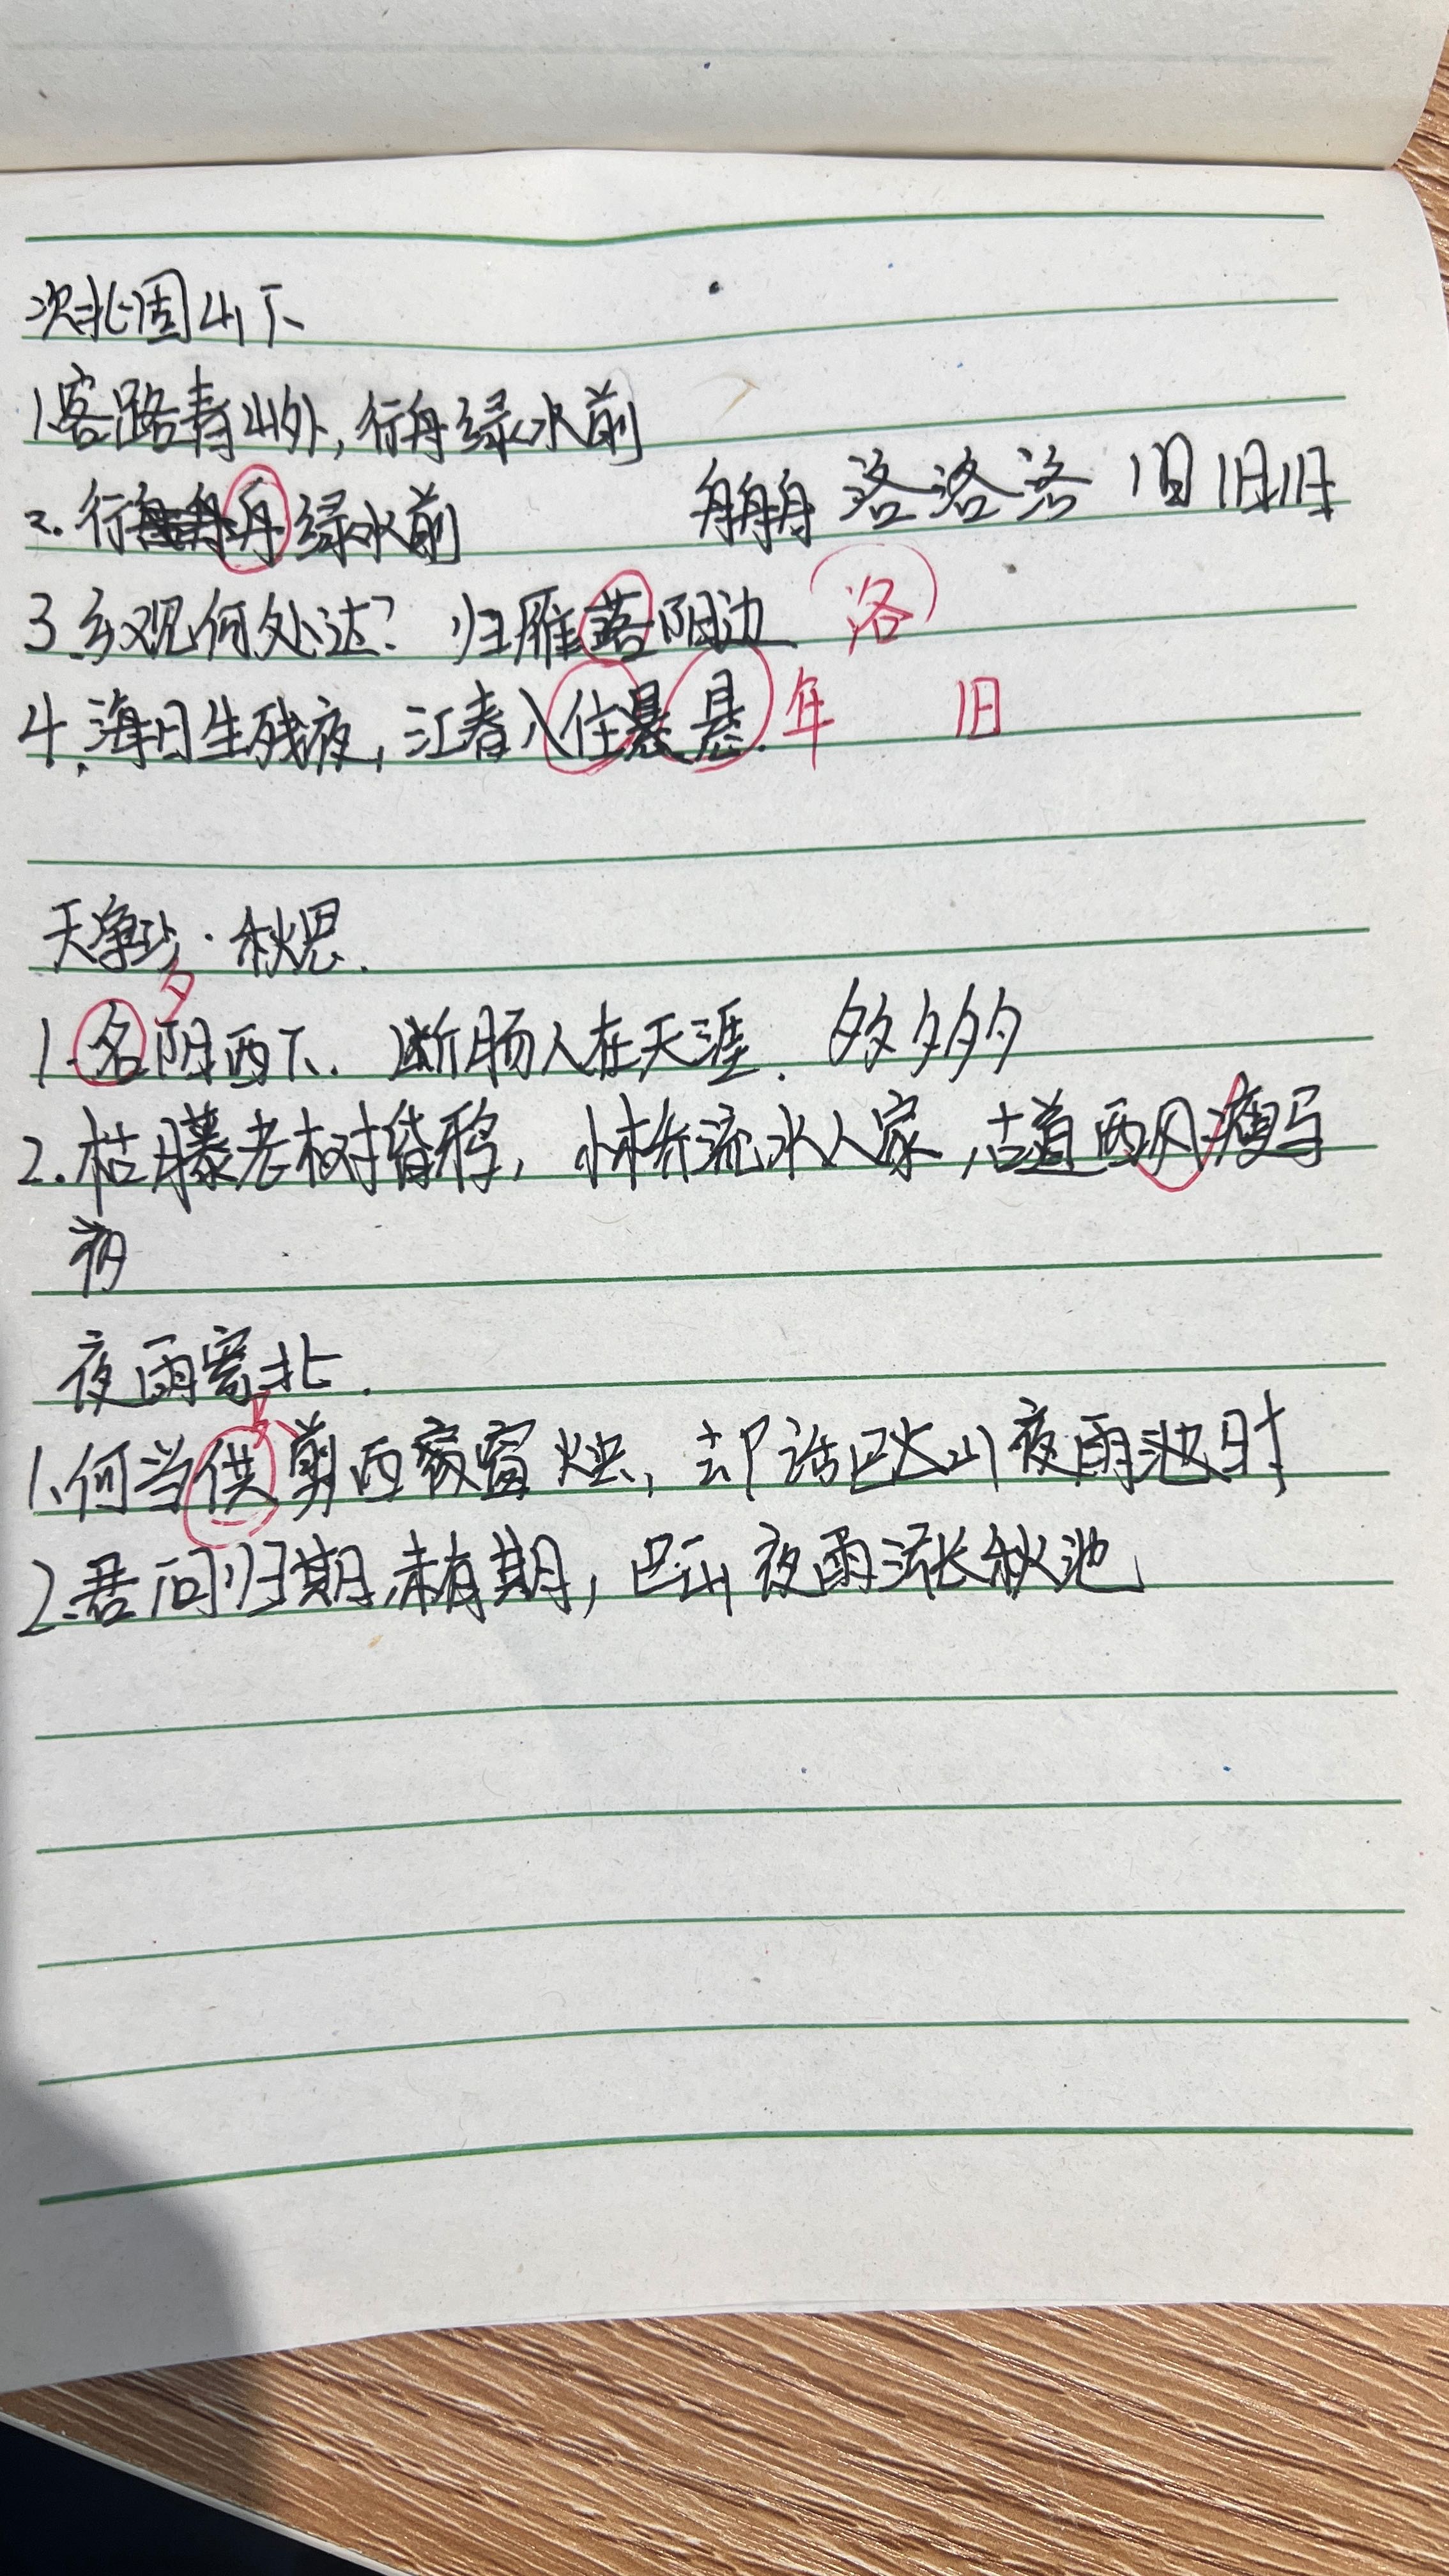 次北固山下
1.客路青山外,行舟绿水前
2.行舟绿水前 舟舟舟 洛洛洛 旧旧旧
3.乡观何处达? 归雁落阳边 洛
4.海日生残夜,江春入住悬 年 旧
天净沙·秋思.
夕
1.名阳西下. 断肠人在天涯. 夕夕夕夕夕
2.枯藤老树昏鸦, 小桥流水人家,古道西风瘦马
夜雨寄北.
1.何当供剪西窗烛,却话巴山夜雨池时
2.君问归期未有期,巴山夜雨涨秋池